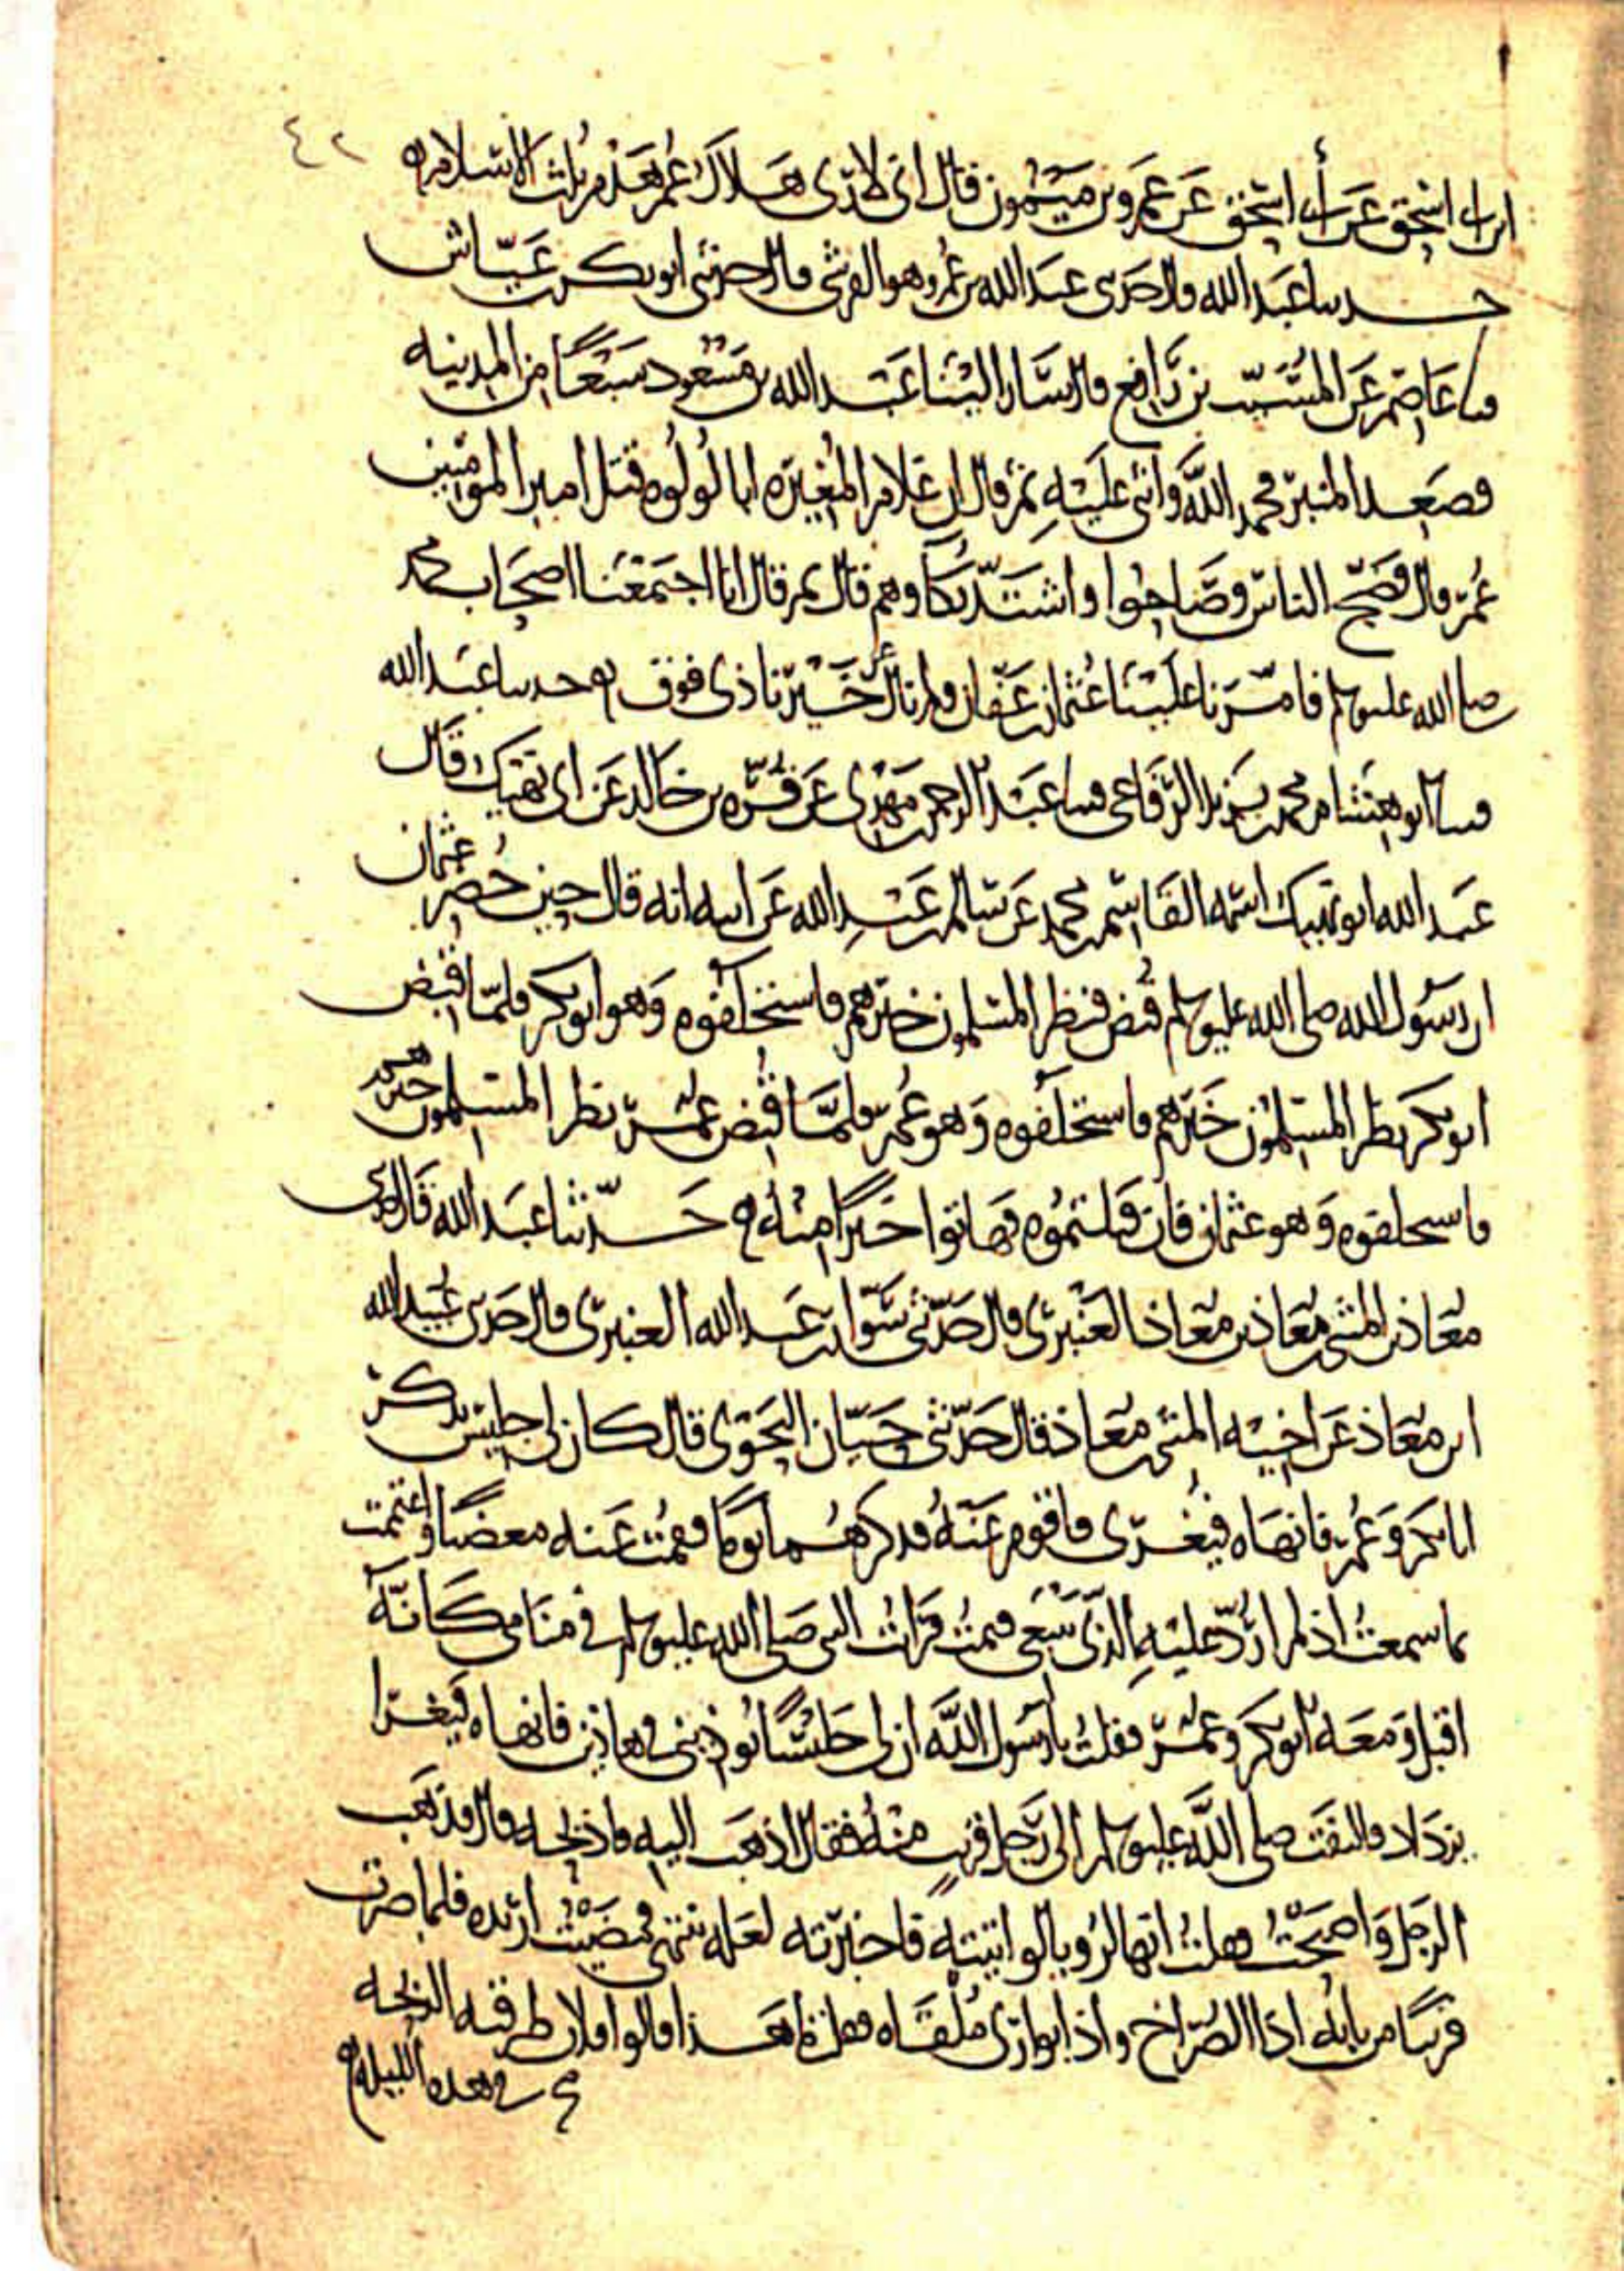 ٤٢
ابن ابى اسحق عن أبى اسحق عن عمرو بن ميمون قال انى لارى هلاك عمر هدم ثلث الاسلام ه
حدثنا عبد الله قال حدثنى عبد الله بن عمر وهو القرشى قال حدثنى ابو بكر بن عياش
ثنا عاصم عن المسيب بن رافع قال سار الينا عبد الله بن مسعود سبعا من المدينه
فصعد المنبر فحمد الله واثنى عليه ثم قال ان غلام المغيره ابا لولوه قتل امير المومنين
عمر قال فضج الناس وصاحوا واشتد بكاوهم قال ثم قال انا اجتمعنا اصحاب محمد
صلى الله عليه وسلم فامرنا علينا عثمان بن عفان ولم نال عن خيرنا ذى فوق ه حدثنا عبد الله
ثنا ابو هشام محمد بن يزيد الرفاعى ثنا عبد الرحمن بن مهدى عن قره بن خالد عن ابى نهيك قال
عبد الله ابو نهيك اسمه القاسم بن محمد عن سالم بن عبد الله عن ابيه انه قال حين حضر عثمان
ان رسول الله صلى الله عليه وسلم قبض فنظر المسلمون خيرهم فاستخلفوه وهو ابو بكر فلما قبض
ابو بكر نظر المسلمون خيرهم فاستخلفوه وهو عمر فلما قبض عمر نظر المسلمون خيرهم
فاستخلفوه وهو عثمان فان قتلتموه فهاتوا خيرا منه ه حدثنا عبد الله قال حدثنى
معاذ بن المثنى بن معاذ بن معاذ العنبرى قال حدثنى سوار بن عبد الله العنبرى قال حدثنى عبيد الله
ابن معاذ عن اخيه المثنى بن معاذ قال حدثنى حيان النحوى قال كان لى جليس يذكر
ابا بكر وعمر فانهاه فيغرى فاقوم عنه فذكرهما يوما فقمت عنه مغضبا واغتممت
بما سمعت اذ لم اردد عليه بالذى ينبغى فنمت فرايت النبى صلى الله عليه وسلم فى منامى كانه
اقبل ومعه ابو بكر وعمر فقلت يا رسول الله ان لى جليسا يوذينى فى هاذين فانهاه فيغرا
ويزداد فالتفت صلى الله عليه وسلم الى رجل قريب منه فقال اذهب اليه فاذبحه قال فذهب
الرجل واصبحت فقلت انها لرويا لو اتيته فاخبرته لعله ينتهى فمضيت اريده فلما صرت
قريبا من بابه اذا الصراخ واذا بوارى ملقاه فقلت ما هذا قالوا فلان طرقته الذبحه
فى هذه الليله ه